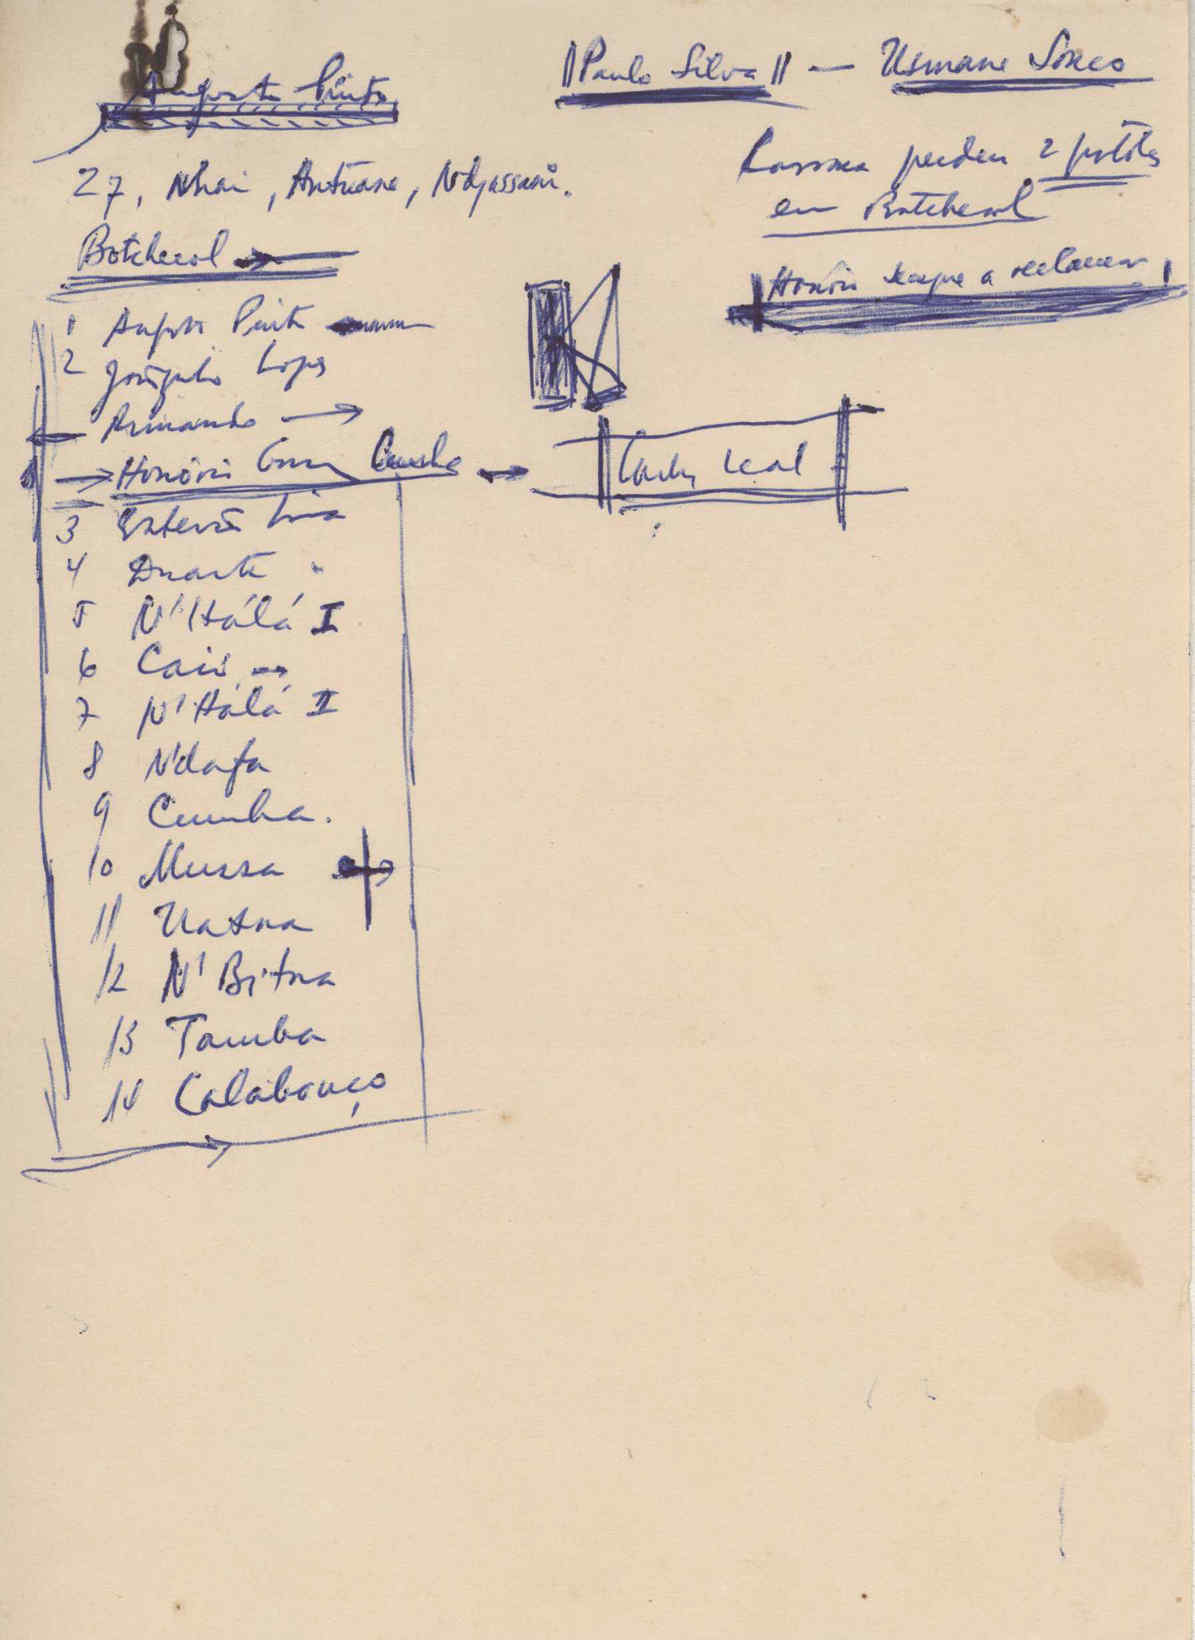 Augusto Pinto
Paulo Silva — Usmane Sonco
27, Nhai, Antuane, Ndjassani.
perdeu 2 pistolas
em Botchecol
Botchecol
Honório a reclamar
1 Augusto Pinto
2 Gonçalo Lopes
Armando
Honório Cunha
Leal
3 Estevão Lima
4 Duarte "
5 N'Hálá I
6 Caió
7 N'Hálá II
8 N'dafa
9 Cumba.
10 Mussa
11 Uatna
12 N'Bitna
13 Tamba
14 Calabouço